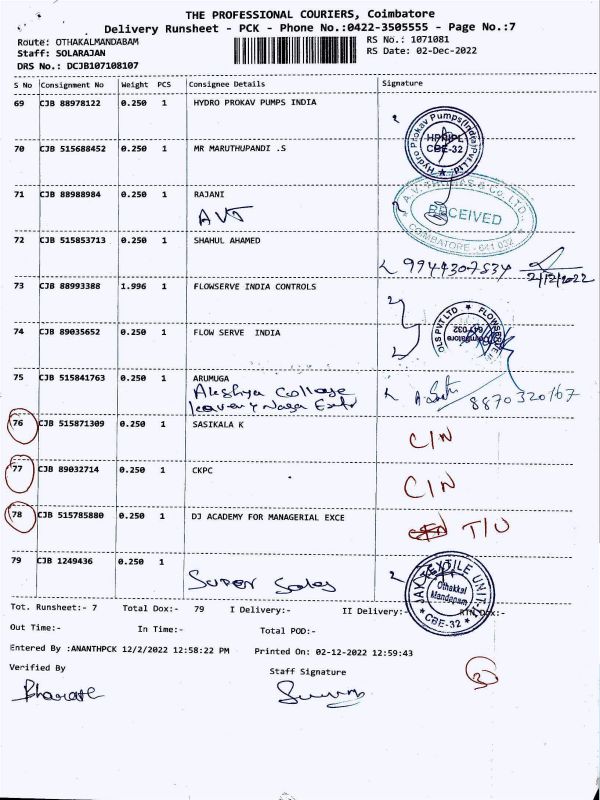 THE PROFESSIONAL COURIERS, Coimbatore
Delivery Runsheet - PCK - Phone No.:0422-3505555 - Page No.:7
Route: OTHAKALMANDABAM RS No.: 1071081
Staff: SOLARAJAN RS Date: 02-Dec-2022
DRS No.: DCJB107108107
S No Consignment No Weight PCS Consignee Details Signature
69 CJB 88978122 0.250 1 HYDRO PROKAV PUMPS INDIA
Hydro Prokav Pumps(India)Pvt.Ltd
HPPIPL
CBE-32
70 CJB 515688452 0.250 1 MR MARUTHUPANDI .S
71 CJB 88988984 0.250 1 RAJANI
AVT
A.V. THOMAS & Co. LTD.,
RECEIVED
COIMBATORE - 641 032
72 CJB 515853713 0.250 1 SHAHUL AHAMED
9944307834 2/12/2022
73 CJB 88993388 1.996 1 FLOWSERVE INDIA CONTROLS
74 CJB 89035652 0.250 1 FLOW SERVE INDIA
OLS PVT LTD FLOWSERVE
Coimbatore
641 032
75 CJB 515841763 0.250 1 ARUMUGA
Akshya College
8870320167
76 CJB 515871309 0.250 1 SASIKALA K
C/N
77 CJB 89032714 0.250 1 CKPC
C/N
78 CJB 515785880 0.250 1 DJ ACADEMY FOR MANAGERIAL EXCE
T/U
79 CJB 1249436 0.250 1
Super Sales
JAY TEXTILE UNIT-
Othakkal
Mandapam
CBE-32
Tot. Runsheet:- 7 Total Dox:- 79 I Delivery:- II Delivery:- RTN Dox:-
Out Time:- In Time:- Total POD:-
Entered By :ANANTHPCK 12/2/2022 12:58:22 PM Printed On: 02-12-2022 12:59:43
Verified By Staff Signature
Bharath
3